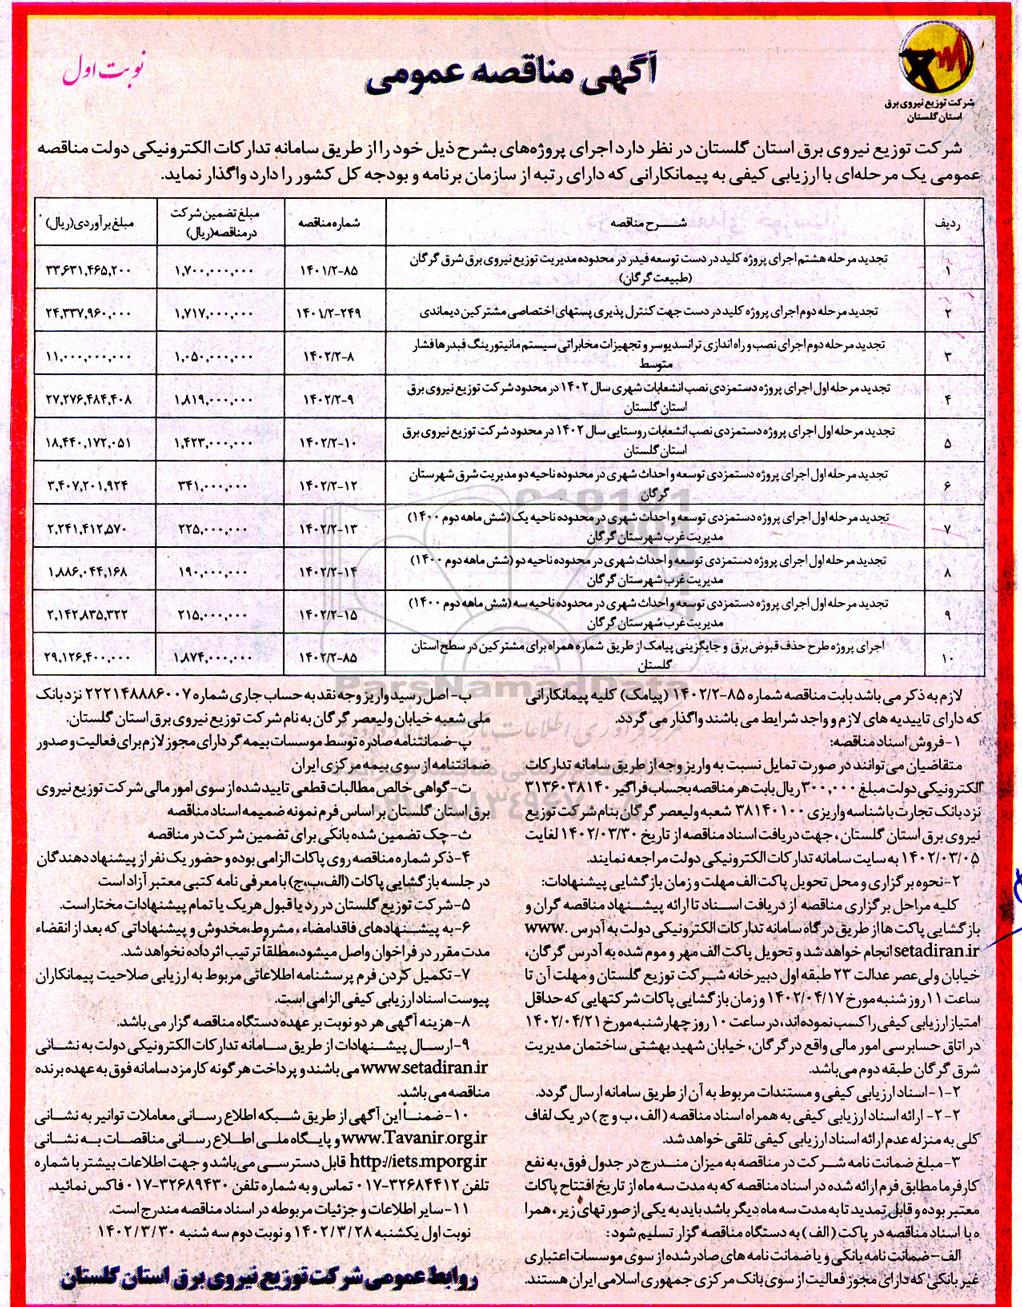 نوبت اول
آگهی مناقصه عمومی
شرکت توزیع نیروی برق
استان گلستان
شرکت توزیع نیروی برق استان گلستان در نظر دارد اجرای پروژه‌های بشرح ذیل خود را از طریق سامانه تدارکات الکترونیکی دولت مناقصه
عمومی یک مرحله‌ای با ارزیابی کیفی به پیمانکارانی که دارای رتبه از سازمان برنامه و بودجه کل کشور را دارد واگذار نماید.
ردیف شــــرح مناقصه شماره مناقصه مبلغ تضمین شرکت در مناقصه (ریال) مبلغ برآوردی (ریال)
۱ تجدید مرحله هشتم اجرای پروژه کلید در دست توسعه فیدر در محدوده مدیریت توزیع نیروی برق شرق گرگان ۱۴۰۱/۲-۸۵ ۱,۷۰۰,۰۰۰,۰۰۰ ۳۳,۶۳۱,۴۶۵,۲۰۰
(طبیعت گرگان)
۲ تجدید مرحله دوم اجرای پروژه کلید در دست جهت کنترل پذیری پستهای اختصاصی مشترکین دیماندی ۱۴۰۱/۲-۲۴۹ ۱,۷۱۷,۰۰۰,۰۰۰ ۲۴,۳۳۷,۹۶۰,۰۰۰
۳ تجدید مرحله دوم اجرای نصب و راه اندازی ترانسدیوسر و تجهیزات مخابراتی سیستم مانیتورینگ فیدرها فشار ۱۴۰۲/۲-۸ ۱,۰۵۰,۰۰۰,۰۰۰ ۱۱,۰۰۰,۰۰۰,۰۰۰
متوسط
۴ تجدید مرحله اول اجرای پروژه دستمزدی نصب انشعابات شهری سال ۱۴۰۲ در محدود شرکت توزیع نیروی برق ۱۴۰۲/۲-۹ ۱,۸۱۹,۰۰۰,۰۰۰ ۲۷,۲۷۶,۴۸۴,۴۰۸
استان گلستان
۵ تجدید مرحله اول اجرای پروژه دستمزدی نصب انشعابات روستایی سال ۱۴۰۲ در محدود شرکت توزیع نیروی برق ۱۴۰۲/۲-۱۰ ۱,۴۲۳,۰۰۰,۰۰۰ ۱۸,۴۴۰,۱۷۲,۰۵۱
استان گلستان
۶ تجدید مرحله اول اجرای پروژه دستمزدی توسعه و احداث شهری در محدوده ناحیه دو مدیریت شرق شهرستان ۱۴۰۲/۲-۱۲ ۳۴۱,۰۰۰,۰۰۰ ۳,۴۰۷,۲۰۱,۹۲۴
گرگان
۷ تجدید مرحله اول اجرای پروژه دستمزدی توسعه و احداث شهری در محدوده ناحیه یک (شش ماهه دوم ۱۴۰۰) ۱۴۰۲/۲-۱۳ ۲۲۵,۰۰۰,۰۰۰ ۲,۲۴۱,۴۱۲,۵۷۰
مدیریت غرب شهرستان گرگان
۸ تجدید مرحله اول اجرای پروژه دستمزدی توسعه و احداث شهری در محدوده ناحیه دو (شش ماهه دوم ۱۴۰۰) ۱۴۰۲/۲-۱۴ ۱۹۰,۰۰۰,۰۰۰ ۱,۸۸۶,۰۴۴,۱۶۸
مدیریت غرب شهرستان گرگان
۹ تجدید مرحله اول اجرای پروژه دستمزدی توسعه و احداث شهری در محدوده ناحیه سه (شش ماهه دوم ۱۴۰۰) ۱۴۰۲/۲-۱۵ ۲۱۵,۰۰۰,۰۰۰ ۲,۱۴۲,۸۳۵,۳۲۲
مدیریت غرب شهرستان گرگان
۱۰ اجرای پروژه طرح حذف قبوض برق و جایگزینی پیامک از طریق شماره همراه برای مشترکین در سطح استان ۱۴۰۲/۲-۸۵ ۱,۸۷۴,۰۰۰,۰۰۰ ۲۹,۱۲۶,۴۰۰,۰۰۰
گلستان
ParsNamadData
لازم به ذکر می باشد بابت مناقصه شماره ۸۵-۱۴۰۲/۲ (پیامک) کلیه پیمانکارانی
که دارای تاییدیه های لازم و واجد شرایط می باشند واگذار می گردد.
۱-فروش اسناد مناقصه:
متقاضیان می‌توانند در صورت تمایل نسبت به واریز وجه از طریق سامانه تدارکات
الکترونیکی دولت مبلغ ۳۰۰,۰۰۰ ریال بابت هر مناقصه بحساب فراگیر ۳۱۳۶۰۳۸۱۴۰
نزد بانک تجارت با شناسه واریزی ۳۸۱۴۰۱۰۰ شعبه ولیعصر گرگان بنام شرکت توزیع
نیروی برق استان گلستان ، جهت دریافت اسناد مناقصه از تاریخ ۱۴۰۲/۰۳/۳۰ لغایت
۱۴۰۲/۰۳/۰۵ به سایت سامانه تدارکات الکترونیکی دولت مراجعه نمایند.
۲-نحوه برگزاری و محل تحویل پاکت الف مهلت و زمان بازگشایی پیشنهادات:
کلیه مراحل برگزاری مناقصه از دریافت اسناد تا ارائه پیشنهاد مناقصه گران و
بازگشایی پاکت ها از طریق درگاه سامانه تدارکات الکترونیکی دولت به آدرس www.
setadiran.ir انجام خواهد شد و تحویل پاکت الف مهر و موم شده به آدرس گرگان،
خیابان ولی‌عصر عدالت ۲۳ طبقه اول دبیرخانه شرکت توزیع گلستان و مهلت آن تا
ساعت ۱۱ روز شنبه مورخ ۱۴۰۲/۰۴/۱۷ و زمان بازگشایی پاکات شرکتهایی که حداقل
امتیاز ارزیابی کیفی را کسب نموده‌اند، در ساعت ۱۰ روز چهارشنبه مورخ ۱۴۰۲/۰۴/۲۱
در اتاق حسابرسی امور مالی واقع در گرگان، خیابان شهید بهشتی ساختمان مدیریت
شرق گرگان طبقه دوم می‌باشد.
۱-۲-اسناد ارزیابی کیفی و مستندات مربوط به آن از طریق سامانه ارسال گردد.
۲-۲- ارائه اسناد ارزیابی کیفی به همراه اسناد مناقصه (الف ، ب و ج) در یک لفاف
کلی به منزله عدم ارائه اسناد ارزیابی کیفی تلقی خواهد شد.
۳-مبلغ ضمانت نامه شرکت در مناقصه به میزان مندرج در جدول فوق، به نفع
کارفرما مطابق فرم ارائه شده در اسناد مناقصه که به مدت سه ماه از تاریخ افتتاح پاکات
معتبر بوده و قابل تمدید تا به مدت سه ماه دیگر باشد باید به یکی از صورتهای زیر ، همرا
ه با اسناد مناقصه در پاکت (الف) به دستگاه مناقصه گزار تسلیم شود:
الف-ضمانت نامه بانکی و یا ضمانت نامه های صادر شده از سوی موسسات اعتباری
غیر بانکی که دارای مجوز فعالیت از سوی بانک مرکزی جمهوری اسلامی ایران هستند.
ب- اصل رسید واریز وجه نقد به حساب جاری شماره ۲۲۲۱۴۸۸۸۶۰۰۷ نزد بانک
ملی شعبه خیابان ولیعصر گرگان به نام شرکت توزیع نیروی برق استان گلستان.
پ-ضمانتنامه صادره توسط موسسات بیمه گر دارای مجوز لازم برای فعالیت و صدور
ضمانتنامه از سوی بیمه مرکزی ایران
ت-گواهی خالص مطالبات قطعی تایید شده از سوی امور مالی شرکت توزیع نیروی
برق استان گلستان بر اساس فرم نمونه ضمیمه اسناد مناقصه
ث-چک تضمین شده بانکی برای تضمین شرکت در مناقصه
۴-ذکر شماره مناقصه روی پاکات الزامی بوده و حضور یک نفر از پیشنهاد دهندگان
در جلسه بازگشایی پاکات (الف،ب،ج) با معرفی نامه کتبی معتبر آزاد است
۵-شرکت توزیع گلستان در رد یا قبول هریک یا تمام پیشنهادات مختار است.
۶-به پیشنهادهای فاقد امضاء ، مشروط،مخدوش و پیشنهاداتی که بعد از انقضاء
مدت مقرر در فراخوان واصل میشود، مطلقاً ترتیب اثر داده نخواهد شد.
۷-تکمیل کردن فرم پرسشنامه اطلاعاتی مربوط به ارزیابی صلاحیت پیمانکاران
پیوست اسناد ارزیابی کیفی الزامی است.
۸-هزینه آگهی هر دو نوبت بر عهده دستگاه مناقصه گزار می باشد.
۹-ارسال پیشنهادات از طریق سامانه تدارکات الکترونیکی دولت به نشانی
www.setadiran.ir می باشند و پرداخت هرگونه کارمزد سامانه فوق به عهده برنده
مناقصه می باشد.
۱۰- ضمناً این آگهی از طریق شبکه اطلاع رسانی معاملات توانیر به نشانی
www.Tavanir.org.ir و پایگاه ملی اطلاع رسانی مناقصات به نشانی
http://iets.mporg.ir قابل دسترسی می‌باشد و جهت اطلاعات بیشتر با شماره
تلفن ۳۲۶۸۴۴۱۲-۰۱۷ تماس و به شماره تلفن ۳۲۶۸۹۴۳۰-۰۱۷ فاکس نمائید.
۱۱-سایر اطلاعات و جزئیات مربوطه در اسناد مناقصه مندرج است.
نوبت اول یکشنبه ۱۴۰۲/۳/۲۸ و نوبت دوم سه شنبه ۱۴۰۲/۳/۳۰
روابط عمومی شرکت توزیع نیروی برق استان گلستان